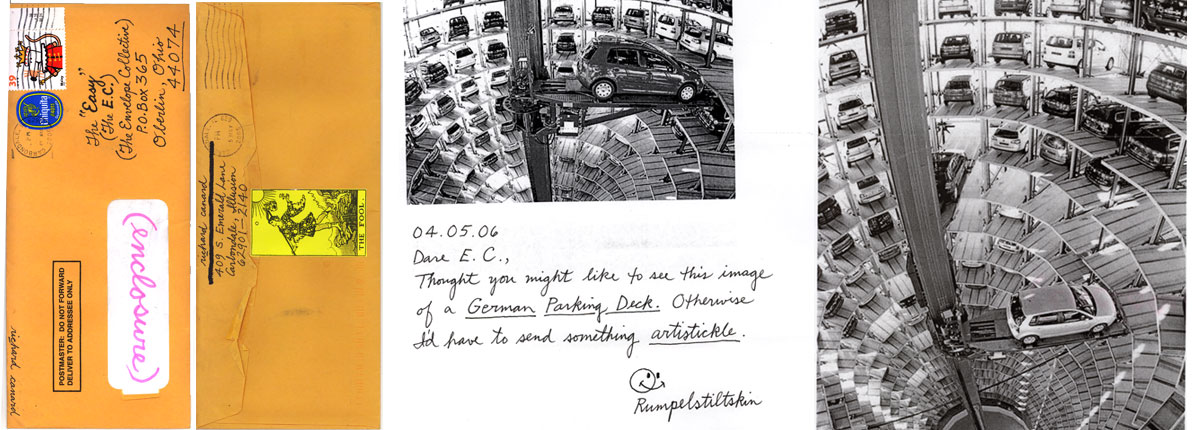 39
Chiquita
The "Easy"
(The E.C.)
(The Envelope Collective)
P.O. Box 365
Oberlin, Ohio
44074
(enclosure)
POSTMASTER: DO NOT FORWARD
DELIVER TO ADDRESSEE ONLY
richard canard
richard canard
409 S. Emerald Lane
Carbondale, Illusion
62901-2140
THE FOOL.
04.05.06
Dare E.C.,
Thought you might like to see this image
of a German Parking Deck. Otherwise
I'd have to send something artistickle.
Rumpelstiltskin